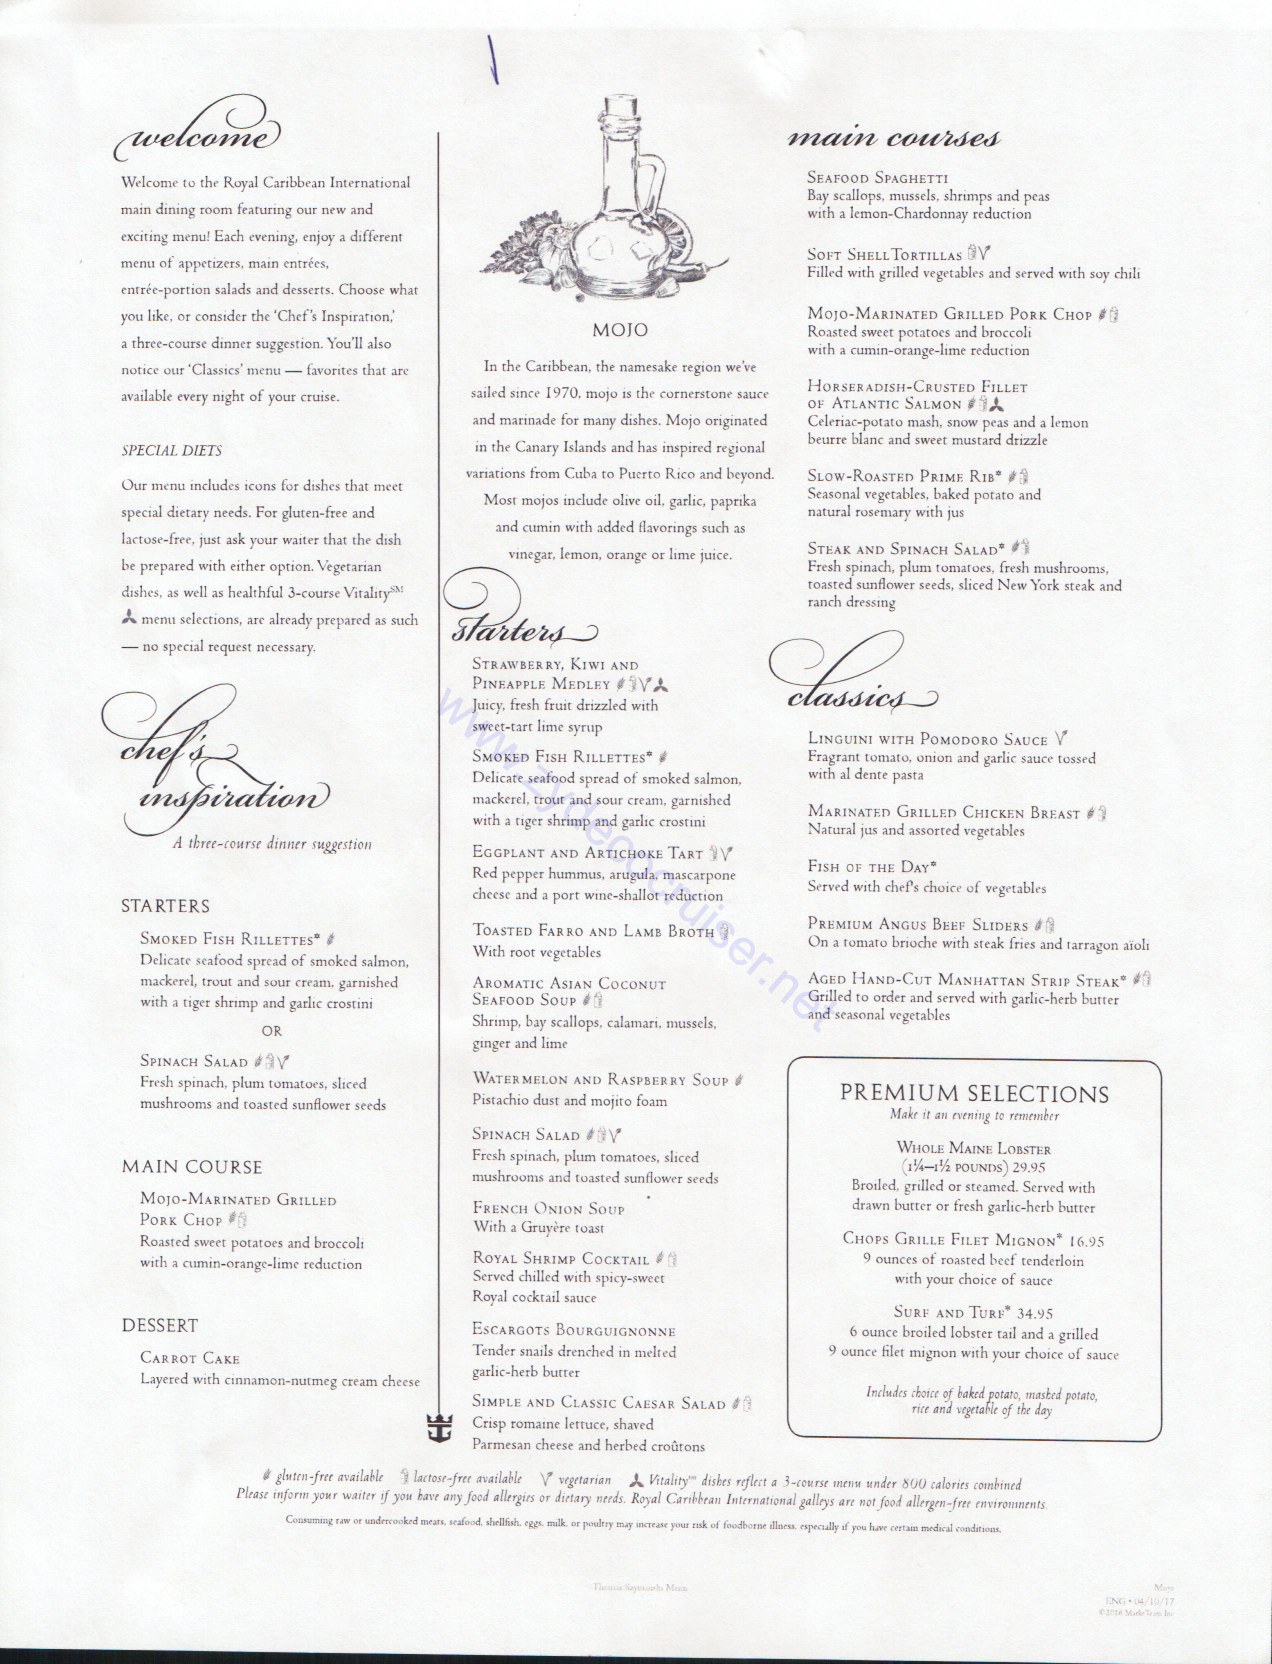 welcome
Welcome to the Royal Caribbean International
main dining room featuring our new and
exciting menu! Each evening, enjoy a different
menu of appetizers, main entrées,
entrée-portion salads and desserts. Choose what
you like, or consider the ‘Chef’s Inspiration,’
a three-course dinner suggestion. You’ll also
notice our ‘Classics’ menu — favorites that are
available every night of your cruise.
SPECIAL DIETS
Our menu includes icons for dishes that meet
special dietary needs. For gluten-free and
lactose-free, just ask your waiter that the dish
be prepared with either option. Vegetarian
dishes, as well as healthful 3-course Vitality℠
menu selections, are already prepared as such
— no special request necessary.
chef's
inspiration
A three-course dinner suggestion
STARTERS
SMOKED FISH RILLETTES*
Delicate seafood spread of smoked salmon,
mackerel, trout and sour cream, garnished
with a tiger shrimp and garlic crostini
OR
SPINACH SALAD
Fresh spinach, plum tomatoes, sliced
mushrooms and toasted sunflower seeds
MAIN COURSE
MOJO-MARINATED GRILLED
PORK CHOP
Roasted sweet potatoes and broccoli
with a cumin-orange-lime reduction
DESSERT
CARROT CAKE
Layered with cinnamon-nutmeg cream cheese
MOJO
In the Caribbean, the namesake region we’ve
sailed since 1970, mojo is the cornerstone sauce
and marinade for many dishes. Mojo originated
in the Canary Islands and has inspired regional
variations from Cuba to Puerto Rico and beyond.
Most mojos include olive oil, garlic, paprika
and cumin with added flavorings such as
vinegar, lemon, orange or lime juice.
starters
STRAWBERRY, KIWI AND
PINEAPPLE MEDLEY
Juicy, fresh fruit drizzled with
sweet-tart lime syrup
SMOKED FISH RILLETTES*
Delicate seafood spread of smoked salmon,
mackerel, trout and sour cream, garnished
with a tiger shrimp and garlic crostini
EGGPLANT AND ARTICHOKE TART
Red pepper hummus, arugula, mascarpone
cheese and a port wine-shallot reduction
TOASTED FARRO AND LAMB BROTH
With root vegetables
AROMATIC ASIAN COCONUT
SEAFOOD SOUP
Shrimp, bay scallops, calamari, mussels,
ginger and lime
WATERMELON AND RASPBERRY SOUP
Pistachio dust and mojito foam
SPINACH SALAD
Fresh spinach, plum tomatoes, sliced
mushrooms and toasted sunflower seeds
FRENCH ONION SOUP
With a Gruyère toast
ROYAL SHRIMP COCKTAIL
Served chilled with spicy-sweet
Royal cocktail sauce
ESCARGOTS BOURGUIGNONNE
Tender snails drenched in melted
garlic-herb butter
SIMPLE AND CLASSIC CAESAR SALAD
Crisp romaine lettuce, shaved
Parmesan cheese and herbed croûtons
main courses
SEAFOOD SPAGHETTI
Bay scallops, mussels, shrimps and peas
with a lemon-Chardonnay reduction
SOFT SHELL TORTILLAS
Filled with grilled vegetables and served with soy chili
MOJO-MARINATED GRILLED PORK CHOP
Roasted sweet potatoes and broccoli
with a cumin-orange-lime reduction
HORSERADISH-CRUSTED FILLET
OF ATLANTIC SALMON
Celeriac-potato mash, snow peas and a lemon
beurre blanc and sweet mustard drizzle
SLOW-ROASTED PRIME RIB*
Seasonal vegetables, baked potato and
natural rosemary with jus
STEAK AND SPINACH SALAD*
Fresh spinach, plum tomatoes, fresh mushrooms,
toasted sunflower seeds, sliced New York steak and
ranch dressing
classics
LINGUINI WITH POMODORO SAUCE
Fragrant tomato, onion and garlic sauce tossed
with al dente pasta
MARINATED GRILLED CHICKEN BREAST
Natural jus and assorted vegetables
FISH OF THE DAY*
Served with chef's choice of vegetables
PREMIUM ANGUS BEEF SLIDERS
On a tomato brioche with steak fries and tarragon aïoli
AGED HAND-CUT MANHATTAN STRIP STEAK*
Grilled to order and served with garlic-herb butter
and seasonal vegetables
PREMIUM SELECTIONS
Make it an evening to remember
WHOLE MAINE LOBSTER
(1¼–1½ POUNDS) 29.95
Broiled, grilled or steamed. Served with
drawn butter or fresh garlic-herb butter
CHOPS GRILLE FILET MIGNON* 16.95
9 ounces of roasted beef tenderloin
with your choice of sauce
SURF AND TURF* 34.95
6 ounce broiled lobster tail and a grilled
9 ounce filet mignon with your choice of sauce
Includes choice of baked potato, mashed potato,
rice and vegetable of the day
gluten-free available lactose-free available vegetarian Vitality℠ dishes reflect a 3-course menu under 800 calories combined
Please inform your waiter if you have any food allergies or dietary needs. Royal Caribbean International galleys are not food allergen-free environments.
Consuming raw or undercooked meats, seafood, shellfish, eggs, milk, or poultry may increase your risk of foodborne illness, especially if you have certain medical conditions.
Menu
Mojo
ENG • 04/10/17
©2016
www.zydecocruiser.net